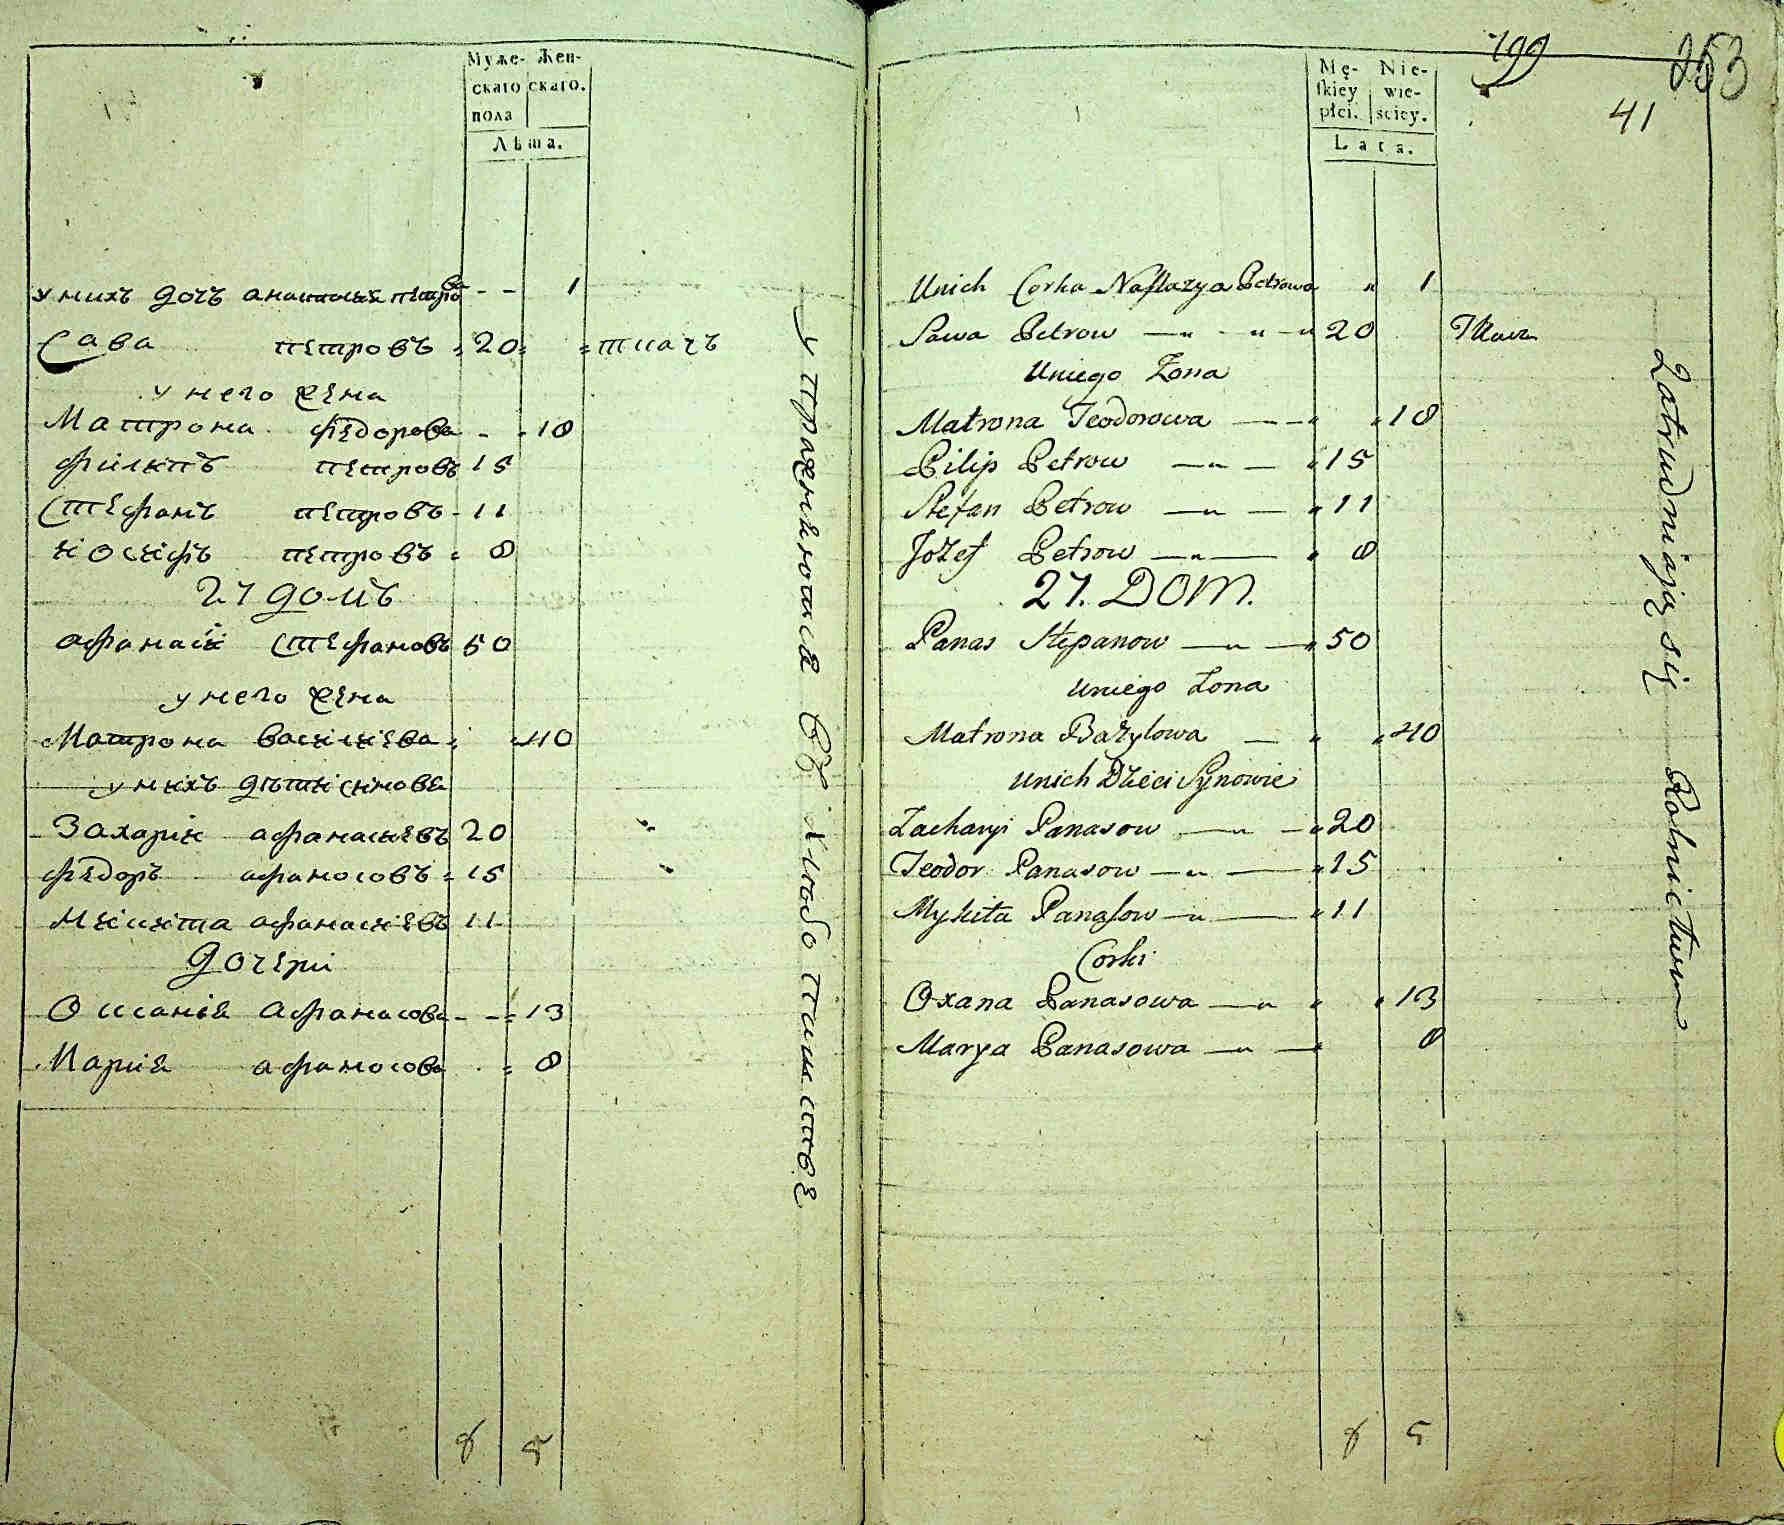 Муже- Жен-
скаго скаго.
пола
Лѣта.
у нихъ дочь анастасия петрова - - 1
Сава петровъ 20 ткачъ
у него жена
Матрона федорова - - 18
филипъ петровъ 15
Стефанъ петровъ - 11
иосифъ петровъ 8
21 домъ
афанасй Стефановъ 50
у него жена
Матрона василиева 40
у нихъ дѣти синовя
Захарии афанасиевъ 20
федоръ афаносовъ 15
Микита афанасиевъ 11
дочери
Оксания Афанасова - - 13
Мария афаносова 8
8 5
упражняются въ хлѣбопашстве
799
253
41
Mę- Nie-
skiey wie-
płci. sciey.
Lata.
Unich Corka Nastazya Petrowa 1
Sawa Petrow 20 Tkacz
Uniego Zona
Matrona Teodorowa 18
Pilip Petrow 15
Stefan Petrow 11
Jożef Petrow 8
21. DOM.
Panas Stepanow 50
Uniego Zona
Matrona Bazylowa 40
Unich Dzieci Synowie
Zacharyi Panasow 20
Teodor Panasow 15
Mykita Panasow 11
Corki
Oxana Panasowa 13
Marya Panasowa 8
8 5
Zatrudniaią się Rolnictwem